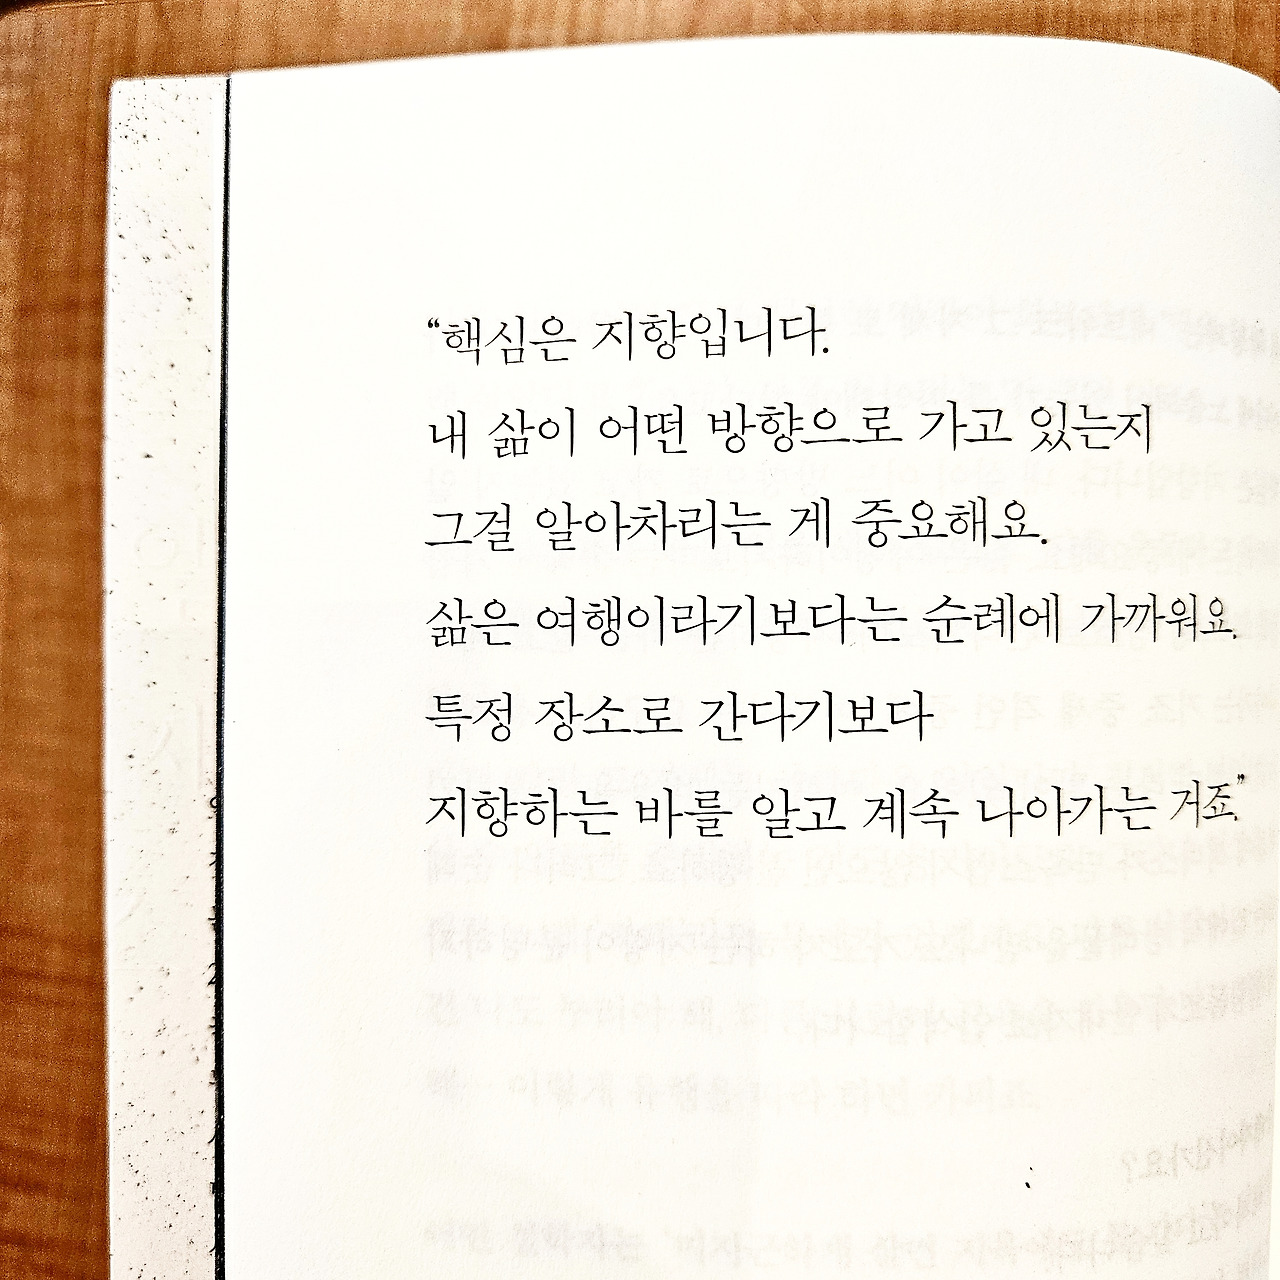 “핵심은 지향입니다.
내 삶이 어떤 방향으로 가고 있는지
그걸 알아차리는 게 중요해요.
삶은 여행이라기보다는 순례에 가까워요.
특정 장소로 간다기보다
지향하는 바를 알고 계속 나아가는 거죠.”